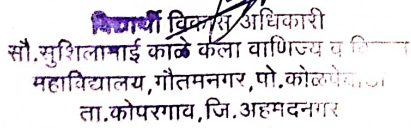 विद्यार्थी विकास अधिकारी
सौ.सुशिलामाई काळे कला वाणिज्य व
महाविद्यालय,गौतमनगर,पो.कोळपेवाडी
ता.कोपरगाव,जि.अहमदनगर